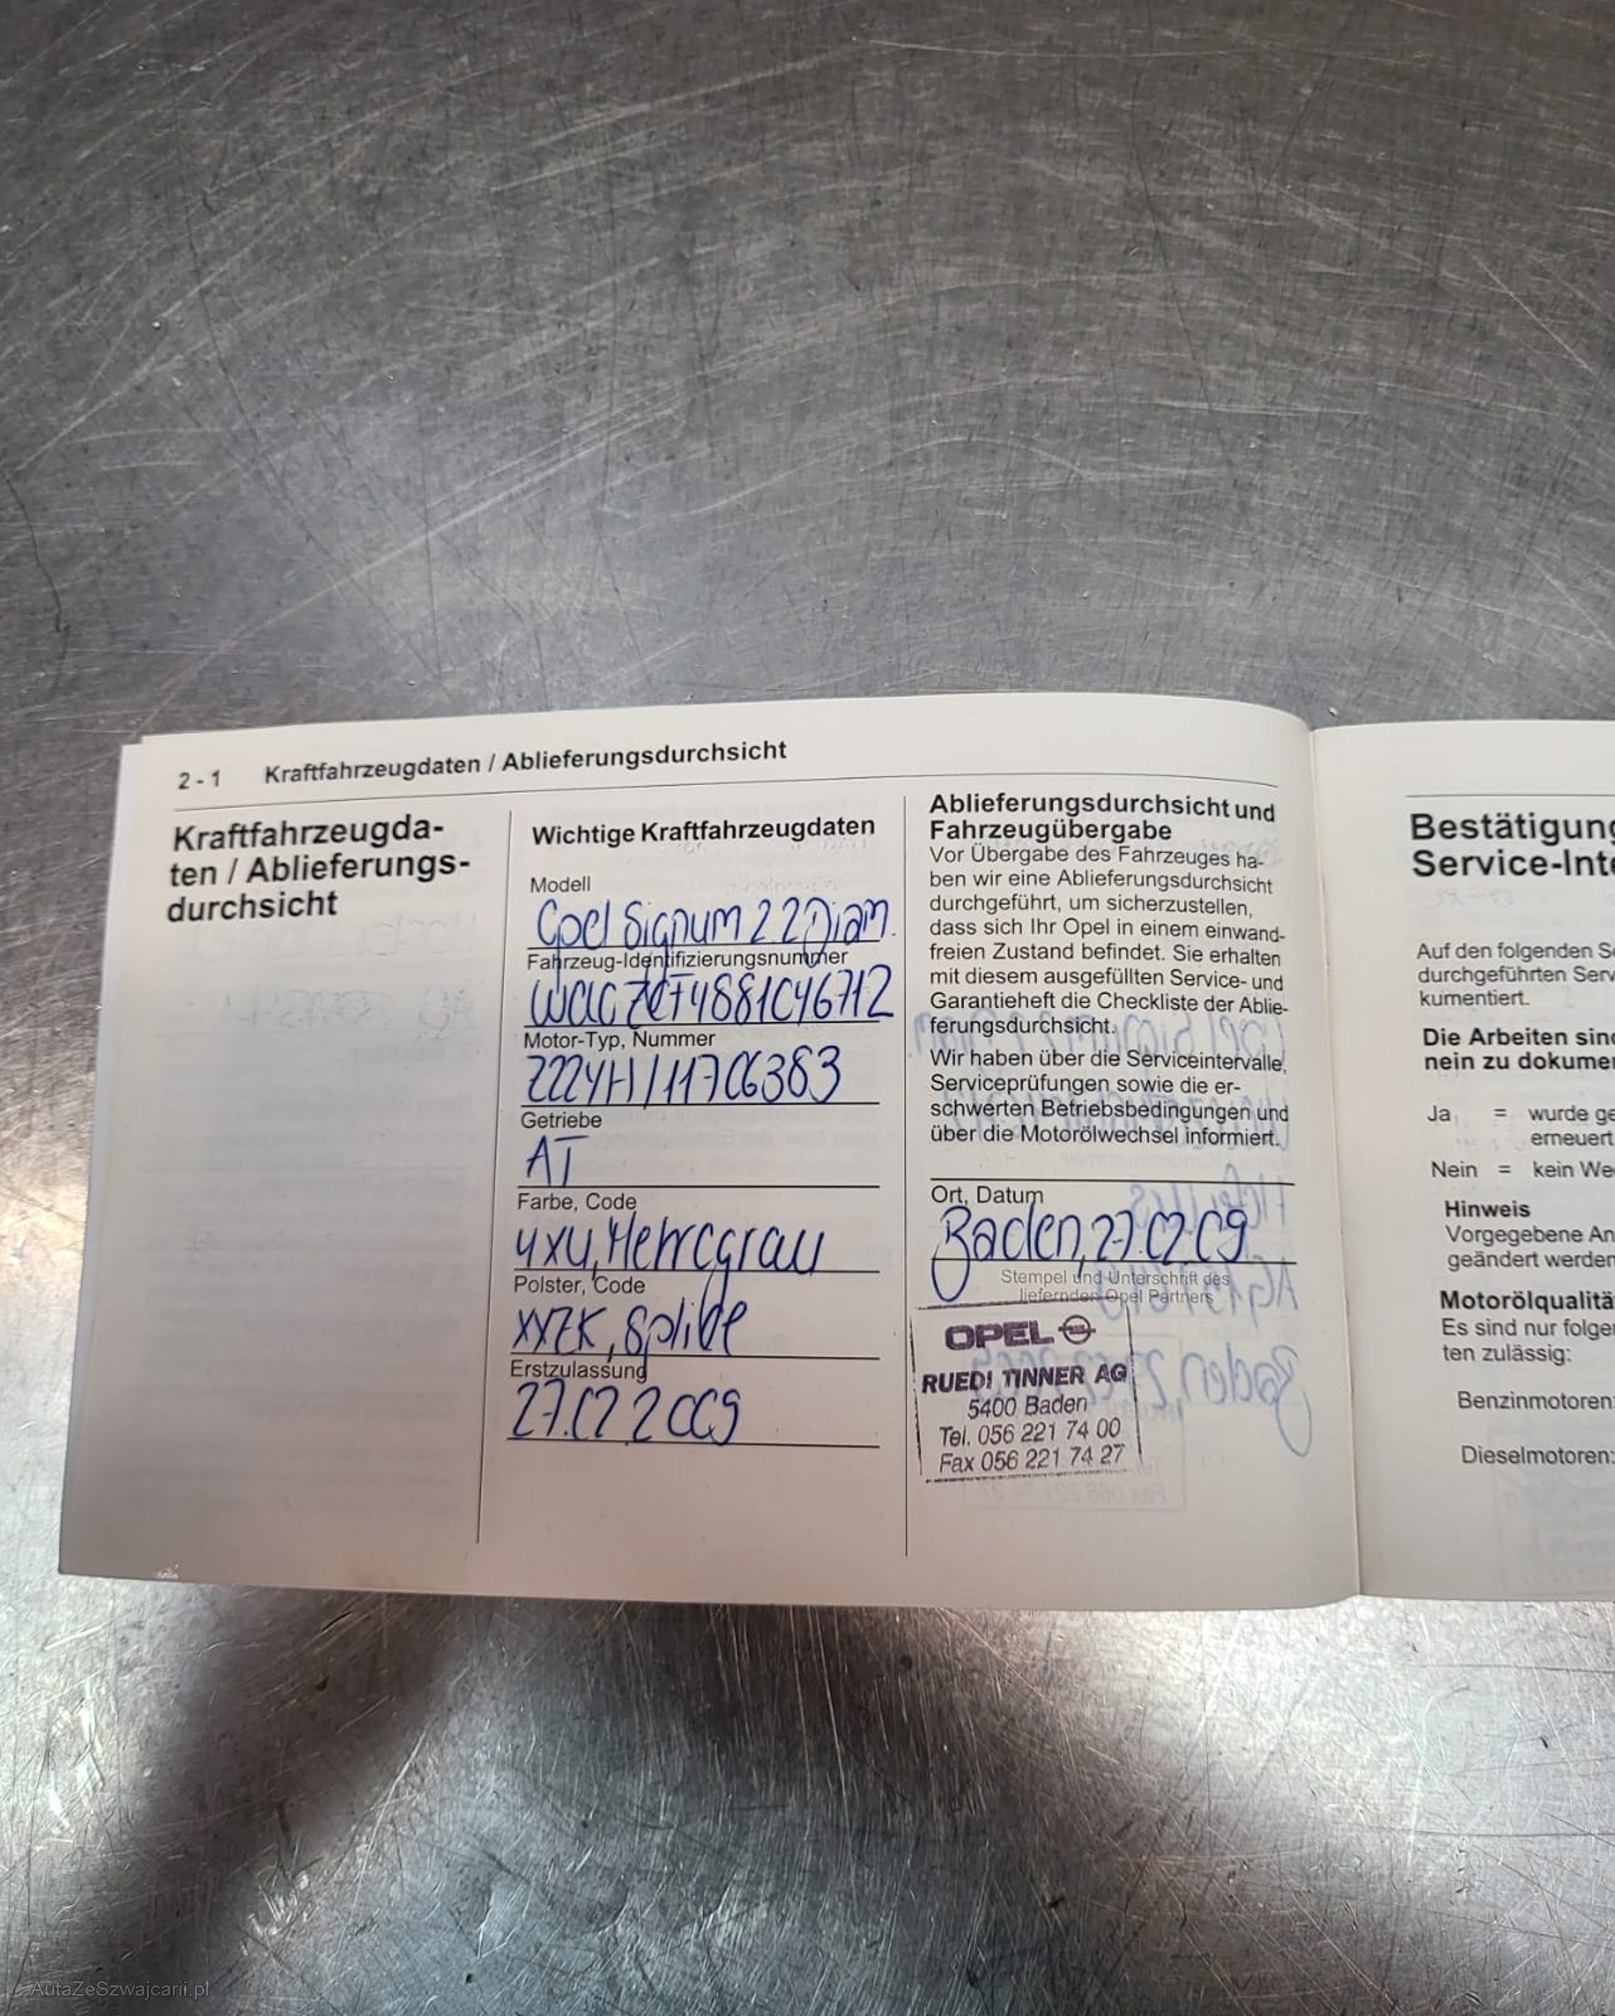 2 - 1 Kraftfahrzeugdaten / Ablieferungsdurchsicht
Kraftfahrzeugda-
ten / Ablieferungs-
durchsicht
Wichtige Kraftfahrzeugdaten
Modell
Opel Signum 2.2 Diam.
Fahrzeug-Identifizierungsnummer
W0L0ZCF4881046712
Motor-Typ, Nummer
Z22YH/11706383
Getriebe
AT
Farbe, Code
4XU, Metrograu
Polster, Code
Erstzulassung
27.02.2009
Ablieferungsdurchsicht und
Fahrzeugübergabe
Vor Übergabe des Fahrzeuges ha-
ben wir eine Ablieferungsdurchsicht
durchgeführt, um sicherzustellen,
dass sich Ihr Opel in einem einwand-
freien Zustand befindet. Sie erhalten
mit diesem ausgefüllten Service- und
Garantieheft die Checkliste der Ablie-
ferungsdurchsicht.
Wir haben über die Serviceintervalle,
Serviceprüfungen sowie die er-
schwerten Betriebsbedingungen und
über die Motorölwechsel informiert.
Ort, Datum
Baden, 27.02.09
Stempel und Unterschrift des
liefernden Opel Partners
OPEL
RUEDI TINNER AG
5400 Baden
Tel. 056 221 74 00
Fax 056 221 74 27
Bestätigung
Service-Inte
Auf den folgenden Se
durchgeführten Serv
kumentiert.
Die Arbeiten sind
nein zu dokumen
Ja = wurde ge
erneuert
Nein = kein We
Hinweis
Vorgegebene An
geändert werden
Motorölqualitä
Es sind nur folger
ten zulässig:
Benzinmotoren:
Dieselmotoren:
AutaZeSzwajcarii.pl